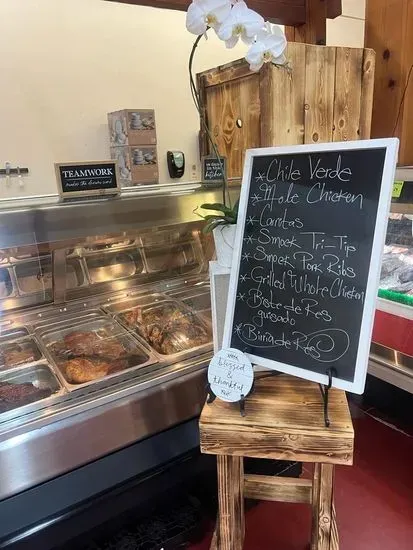 TEAMWORK
makes the dream work
kitchen
* Chile Verde
* Mole Chicken
* Carnitas
* Smoek Tri-Tip
* Smoek Pork Ribs
* Grilled Whole Chicken
* Bistec de Res
guesado
* Birria de Res
blessed
&
thankful